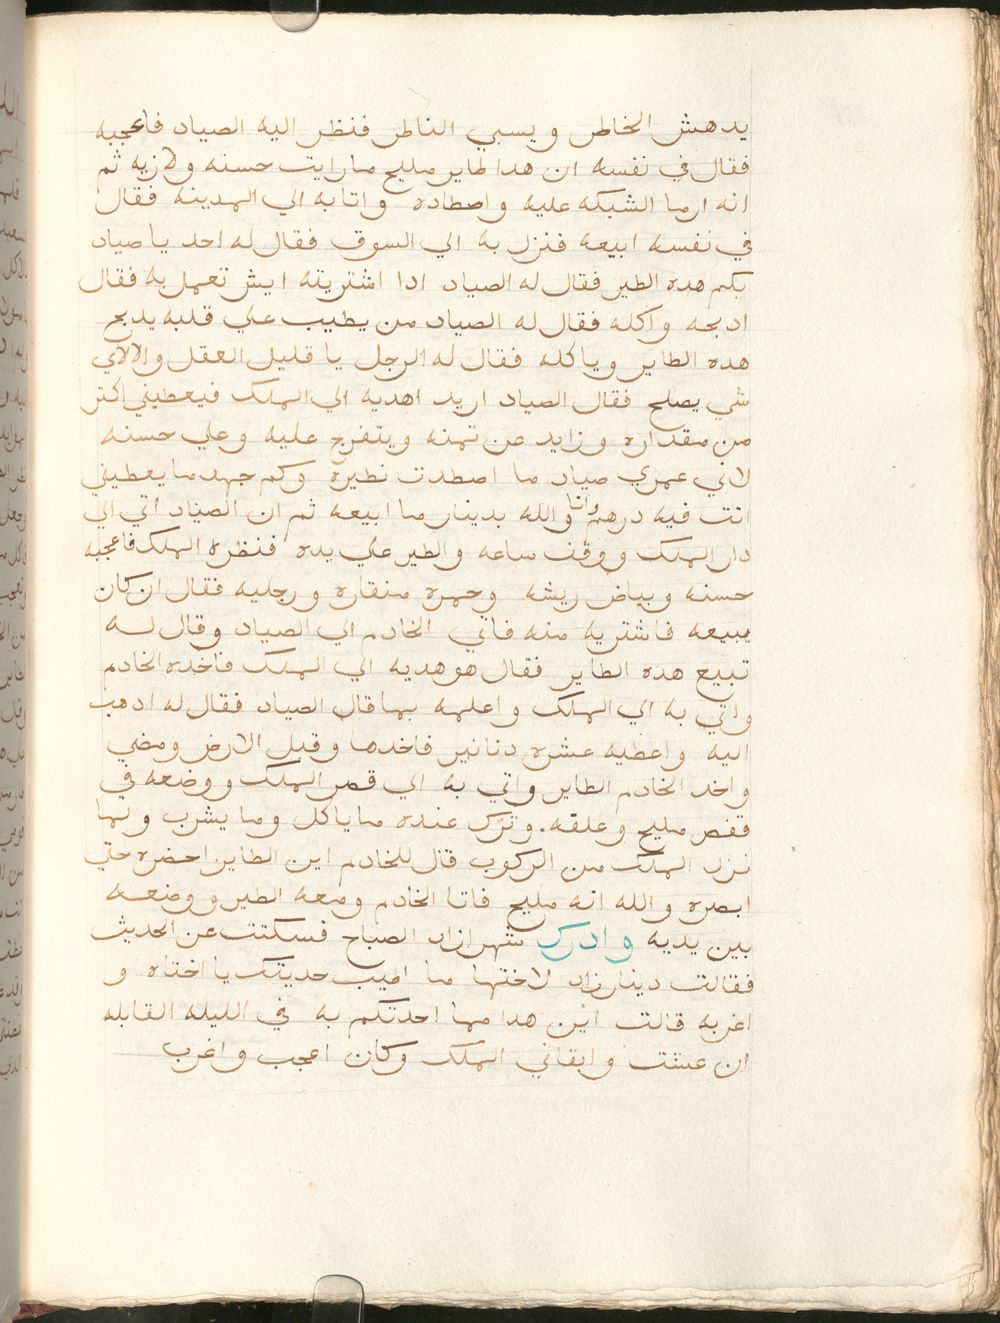 يدهش الخاطر ويسبي الناطر فنظر اليه الصياد فاعجبه
فقال في نفسه ان هدا طاير مليح مارايت حسنه ولا زيه ثم
انه ارما الشبكه عليه واصطاده واتا به الي المدينه فقال
في نفسه ابيعه فنزل به الي السوق فقال له احد يا صياد
بكم هده الطير فقال له الصياد ادا اشتريته ايش تعمل به فقال
ادبحه واكله فقال له الصياد من يطيب علي قلبه يدبح
هده الطاير وياكله فقال له الرجل يا قليل العقل والا لاي
شي يصلح فقال الصياد اريد اهديه الي الملك فيعطيني اكتر
من مقداره وزايد عن تمنه ويتفرج عليه وعلي حسنه
لاني عمري صياد ما اصطدت نطيره وكم جهد ما يعطيني
انت فيه درهم وانا والله بدينار ما ابيعه ثم ان الصياد اتي الي
دار الملك ووقف ساعه والطير علي يده فنظره الملك فاعجبه
حسنه وبياض ريشه وحمره منقاره ورجليه فقال ان كان
يبيعه فاشتريه منه فاتي الخادم الي الصياد وقال له
تبيع هده الطاير فقال هو هديه الي الملك فاخده الخادم
واتي به الي الملك واعلمه بما قال الصياد فقال له ادهب
اليه واعطيه عشره دنانير فاخدها وقبل الارض ومضي
واخد الخادم الطاير واتي به الي قصر الملك ووضعه في
قفص مليح وعلقه. وترك عنده ما ياكل وما يشرب ولما
نزل الملك من الركوب قال للخادم اين الطاير احضره حتي
ابصره والله انه مليح فاتا الخادم ومعه الطير ووضعه
بين يديه وادرك شهرازاد الصباح فسكتت عن الحديث
فقالت دينارزاد لاختها ما اطيب حديتك يا اختاه و
اغربه قالت اين هدا مما احدتكم به في الليله القابله
ان عشت وابقاني الملك وكان اعجب واغرب